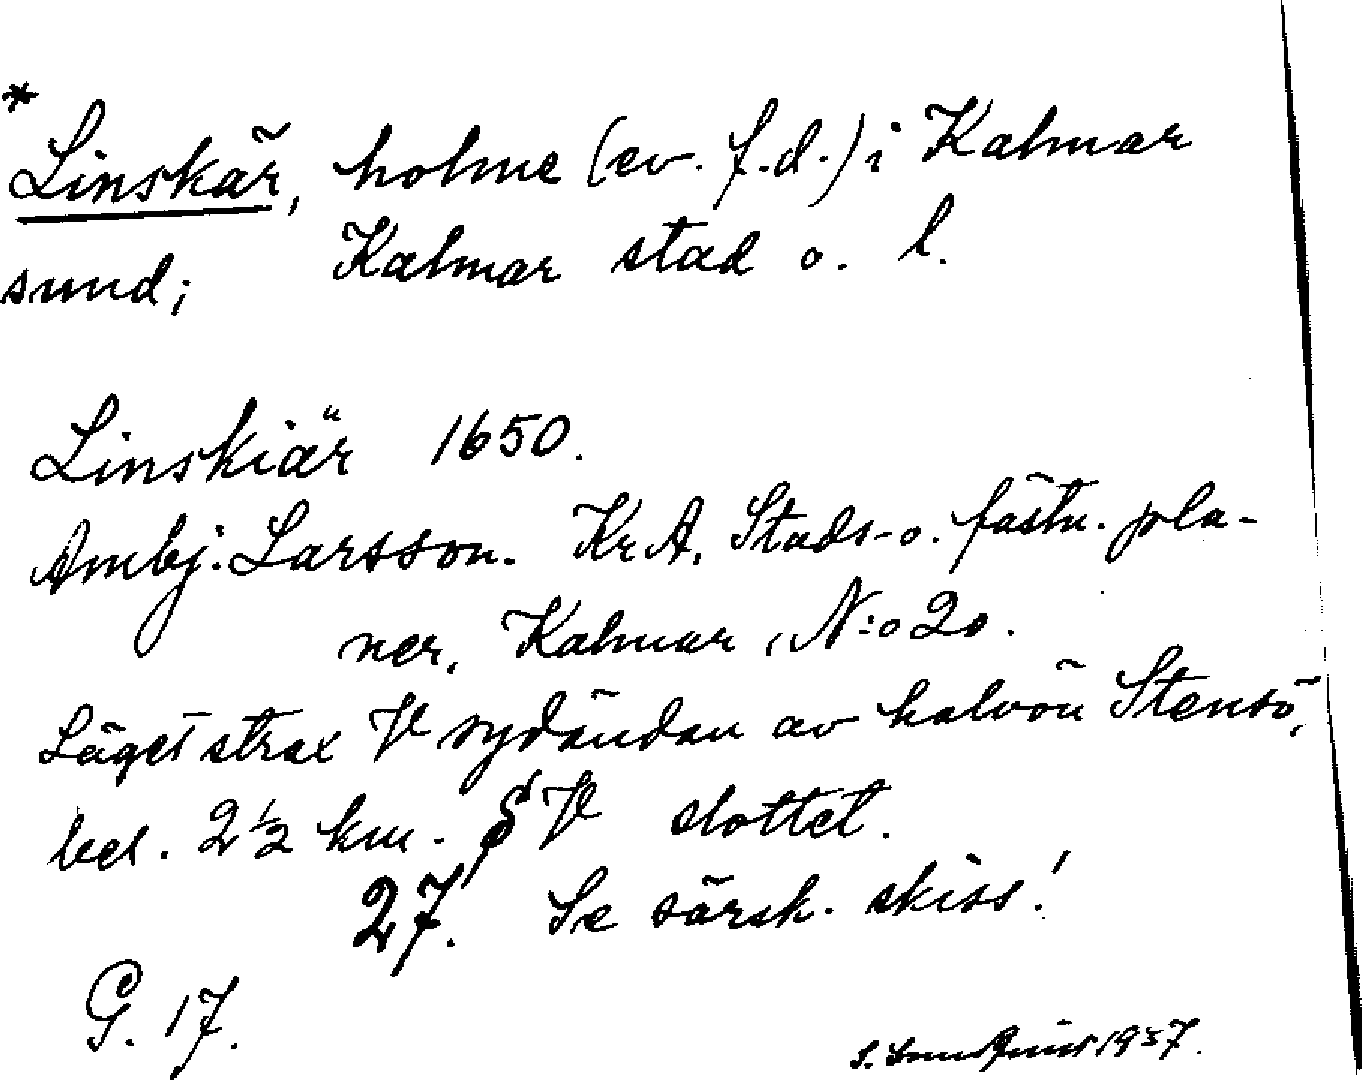 *
Linskär, holme (ev. f.d.) i Kalmar
sund; Kalmar stad o. l.
Linskiär 1650.
Ambj. Larsson. KrA. Stads- o. fästn. pla-
ner, Kalmar, N:o 20.
Läget strax V sydändan av halvön Stensö,
bel. 2½ km. SV slottet.
27. Se särsk. skiss!
G. 17.
S. 1937.